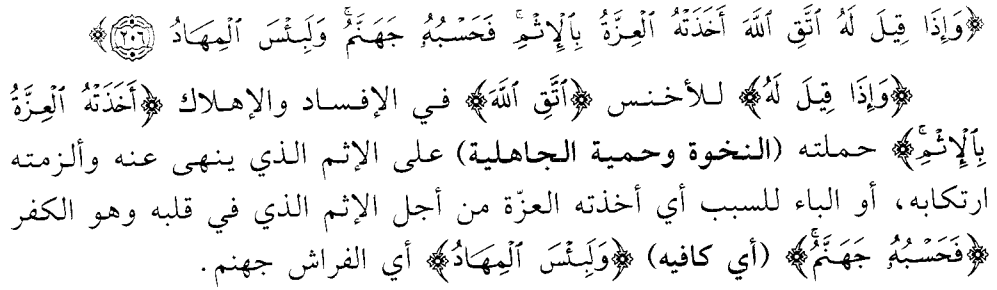 ﴿وَإِذَا قِيلَ لَهُ ٱتَّقِ ٱللَّهَ أَخَذَتْهُ ٱلْعِزَّةُ بِٱلْإِثْمِۚ فَحَسْبُهُۥ جَهَنَّمُۚ وَلَبِئْسَ ٱلْمِهَادُ ٢٠٦﴾
﴿وَإِذَا قِيلَ لَهُ﴾ للأخنس ﴿ٱتَّقِ ٱللَّهَ﴾ في الإفساد والإهلاك ﴿أَخَذَتْهُ ٱلْعِزَّةُ
بِٱلْإِثْمِۚ﴾ حملته (النخوة وحمية الجاهلية) على الإثم الذي ينهى عنه وألزمته
ارتكابه، أو الباء للسبب أي أخذته العزّة من أجل الإثم الذي في قلبه وهو الكفر
﴿فَحَسْبُهُۥ جَهَنَّمُۚ﴾ (أي كافيه) ﴿وَلَبِئْسَ ٱلْمِهَادُ﴾ أي الفراش جهنم.